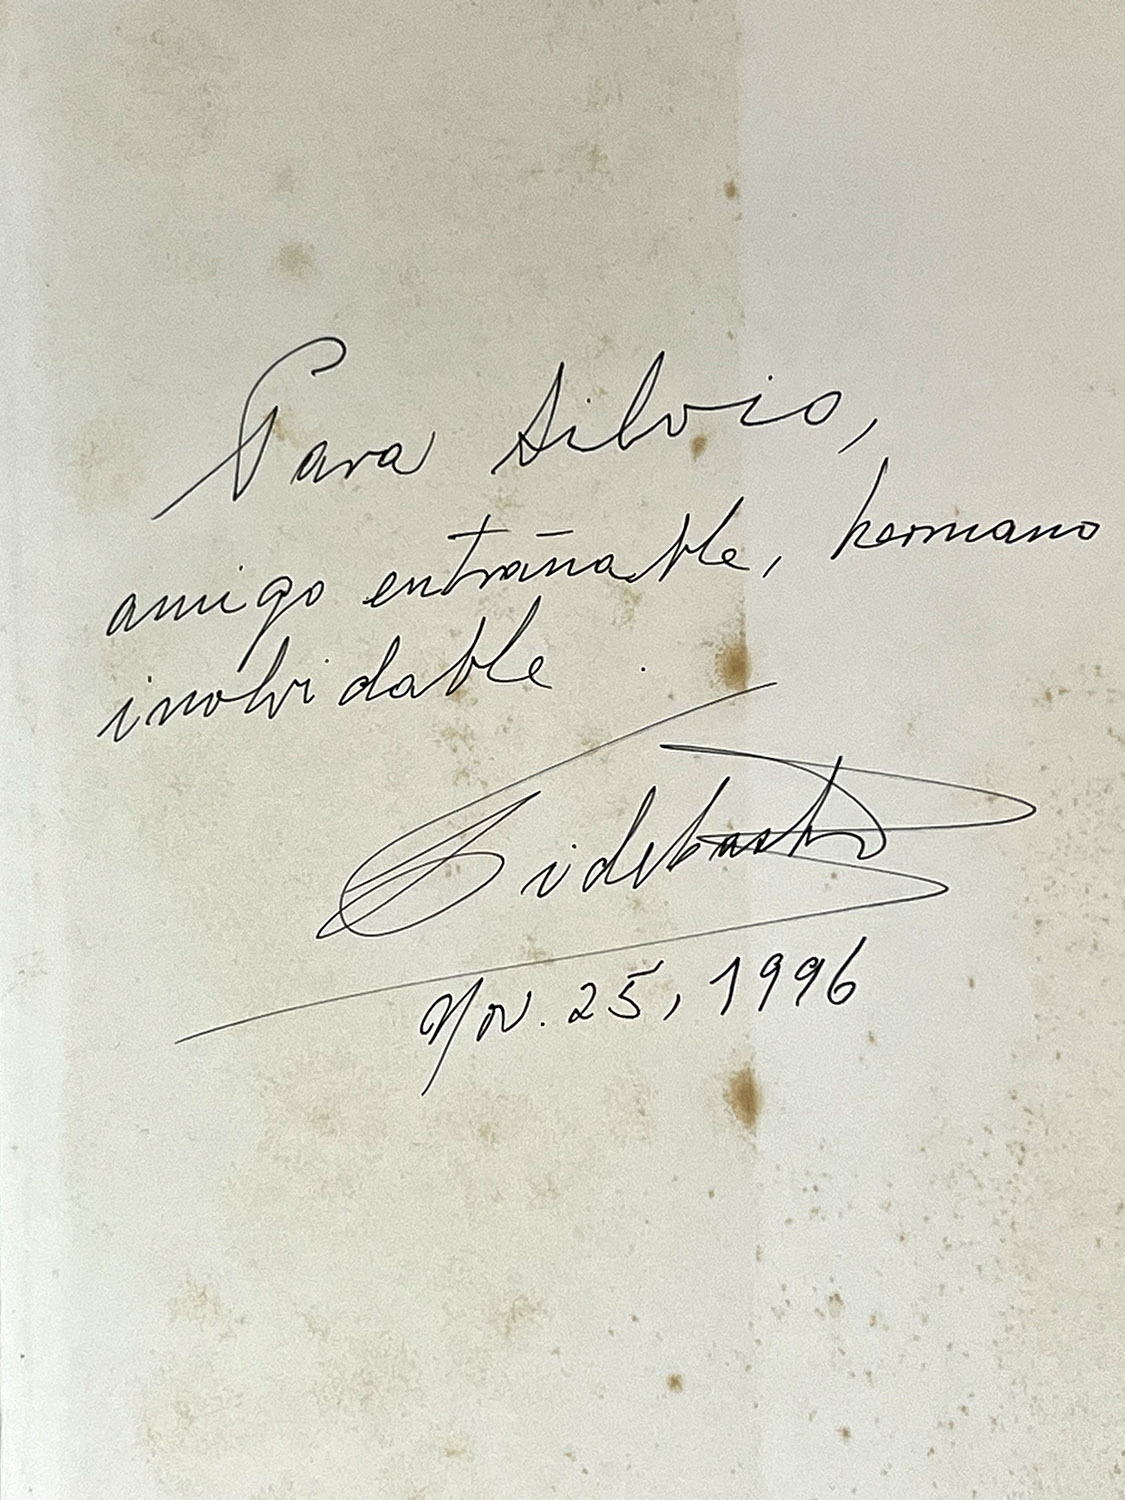 Para Silvio,
amigo entrañable, hermano
inolvidable.
Fidel Castro
Nov. 25, 1996